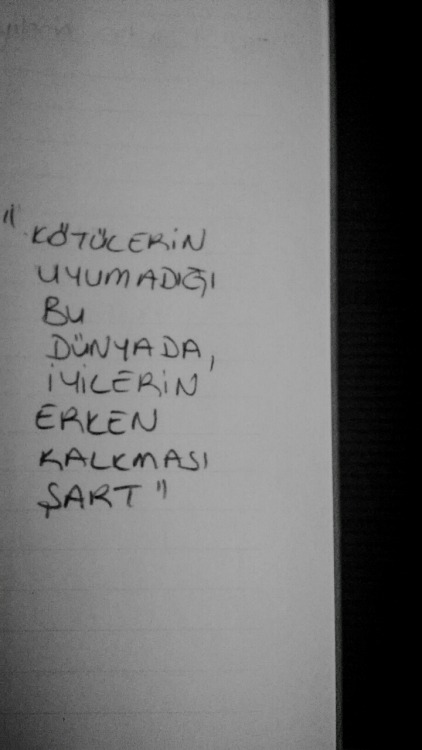 "KÖTÜLERİN
UYUMADIĞI
BU
DÜNYADA,
İYİLERİN
ERKEN
KALKMASI
ŞART"